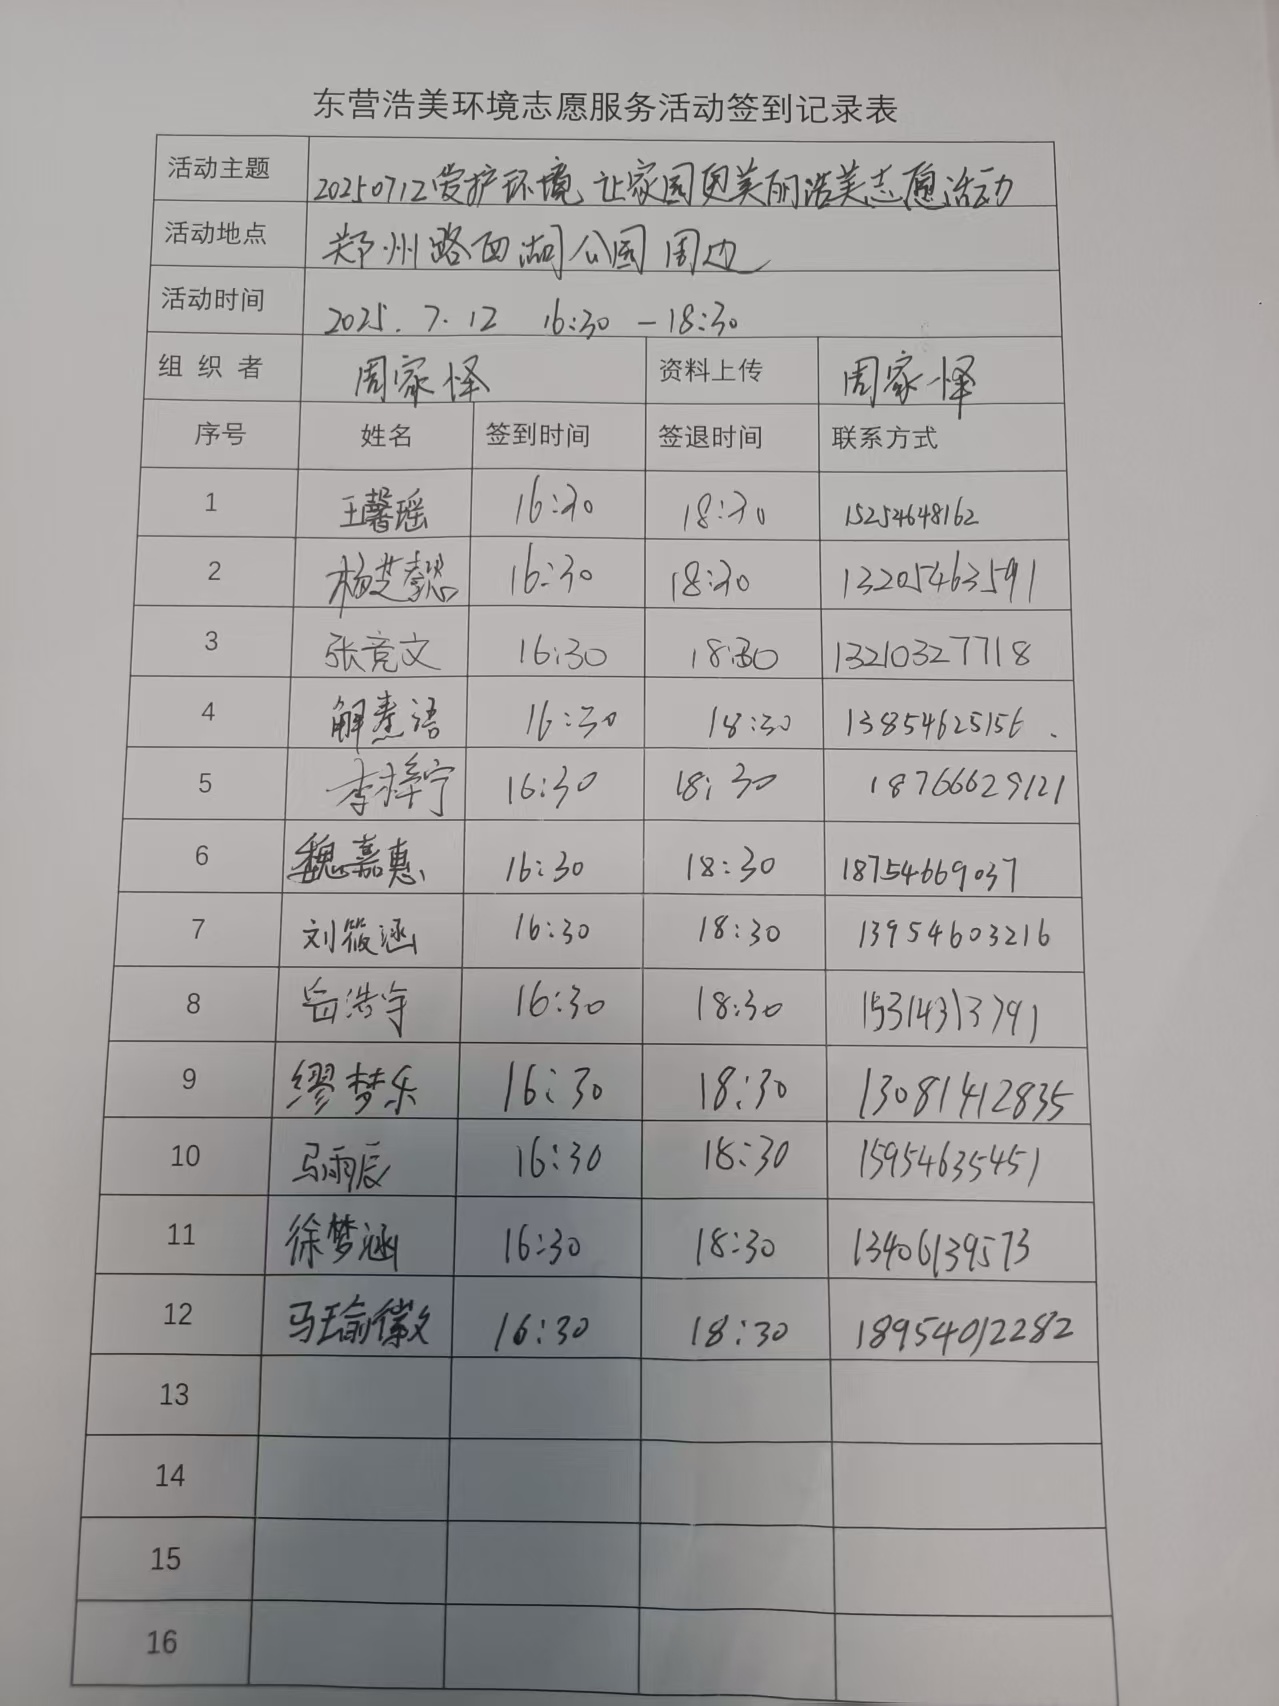 东营浩美环境志愿服务活动签到记录表
活动主题 20250712爱护环境,让家园更美丽浩美志愿活动
活动地点 郑州路西湖公园周边
活动时间 2025.7.12 16:30-18:30
组织者 周家怿 资料上传 周家怿
序号 姓名 签到时间 签退时间 联系方式
1 王馨瑶 16:30 18:30 15254648162
2 杨芝懿 16:30 18:30 13205463591
3 张竞文 16:30 18:30 13210327718
4 解 语 16:30 18:30 13854625156.
5 李梓宁 16:30 18:30 18766629121
6 魏嘉惠 16:30 18:30 18754669037
7 刘筱涵 16:30 18:30 13954603216
8 岳浩宇 16:30 18:30 15314313791
9 缪梦乐 16:30 18:30 13081412835
10 马雨辰 16:30 18:30 15954635451
11 徐梦涵 16:30 18:30 13406139573
12 马瑜徽 16:30 18:30 18954012282
13
14
15
16